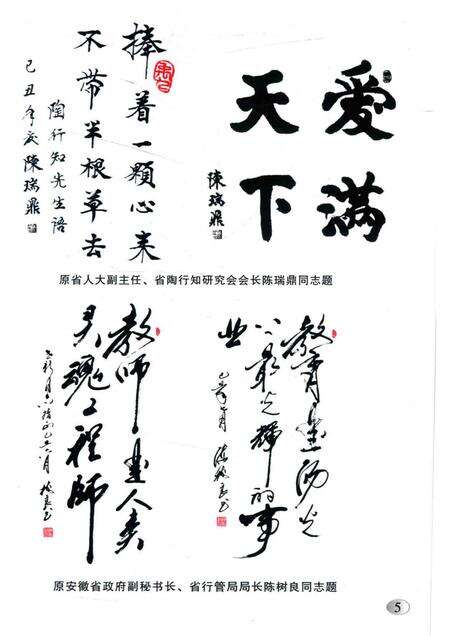 愛滿
天下
陳瑞鼎
捧着一顆心来
不帶半根草去
陶行知先生語
己丑年夏陳瑞鼎
原省人大副主任、省陶行知研究会会长陈瑞鼎同志题
教育是阳光
下最光輝的事
业
教师是人类
灵魂工程師
原安徽省政府副秘书长、省行管局局长陈树良同志题
5